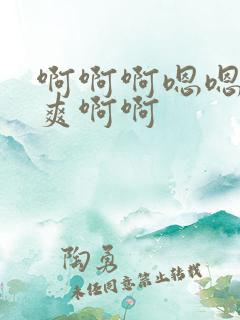 啊啊啊嗯嗯
爽啊啊
陶勇
未经同意禁止转载